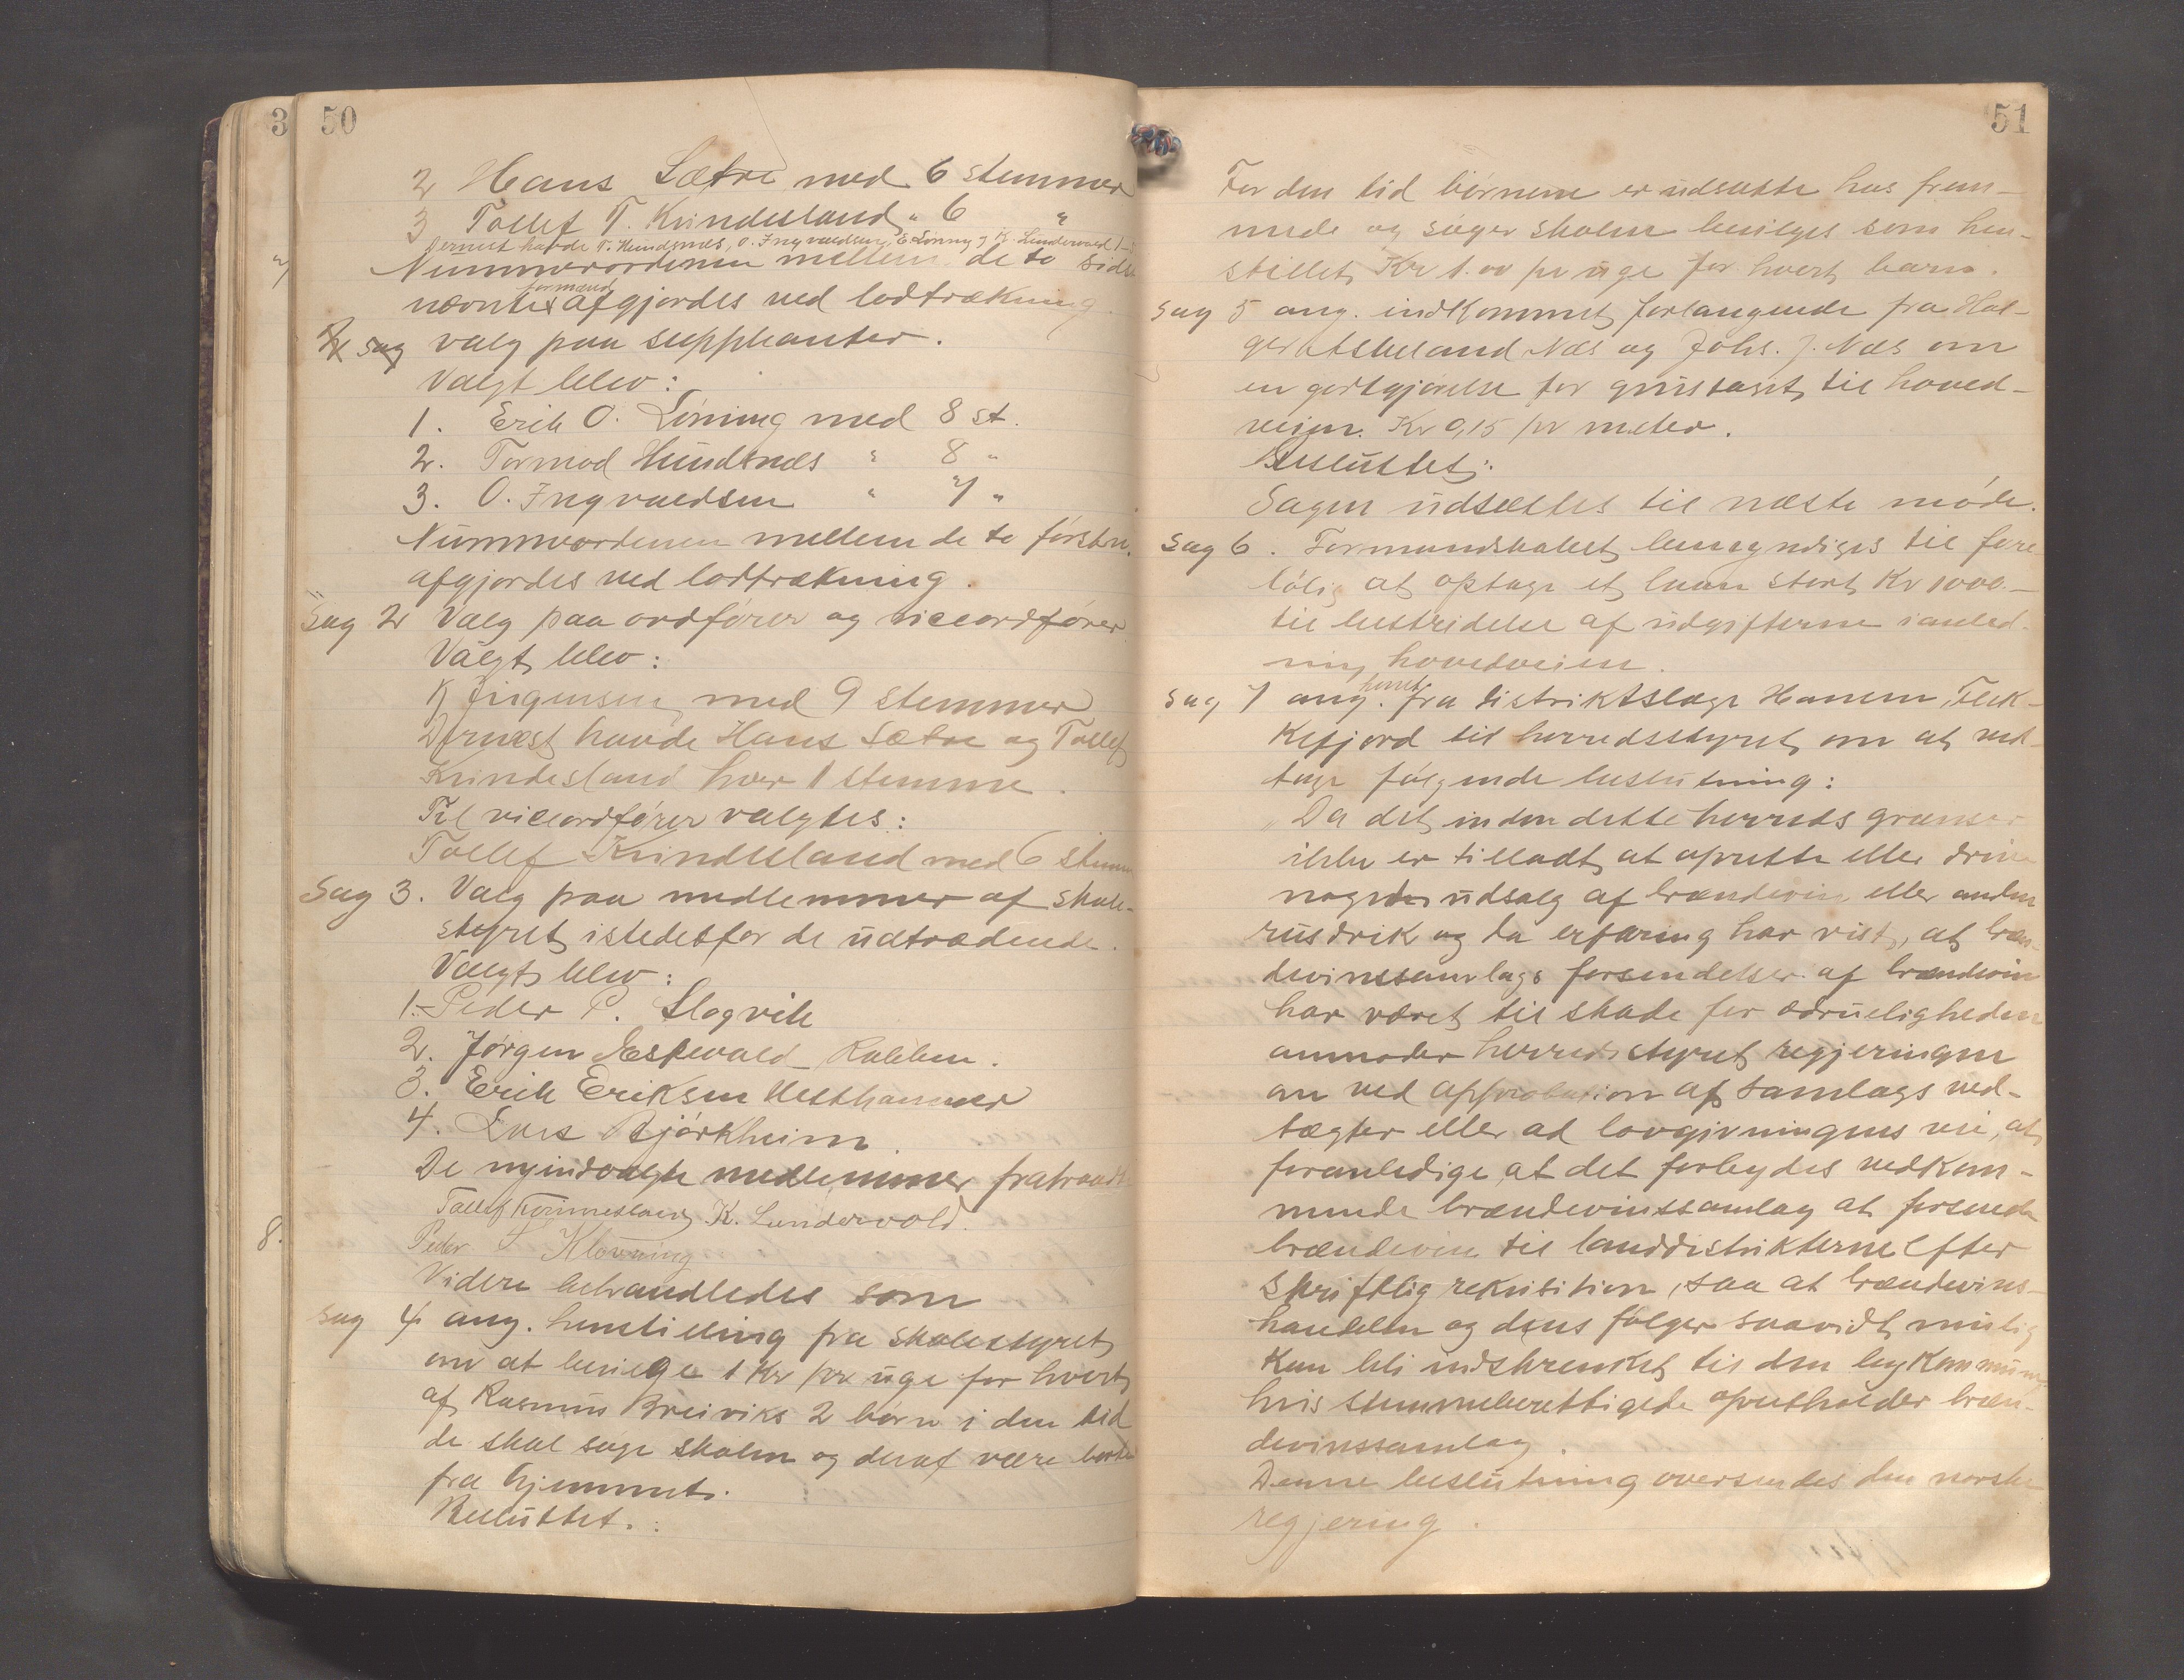 50
2 Hans Sætre med 6 stemmer
3 Tollef T. Kvindesland " 6 "
Dernest havde T. Hundsnes, O. Ingvaldsen, E. Lönning og K. Lindervold 1
Nummerordenen mellem de to sidst
nævnte formænd afgjordes ved lodtrækning.
sag valg paa supphanter.
Valgt blev:
1. Erik O. Löning med 8 st.
2. Tormod Hundsnæs " 8 "
3. O. Ingvaldsen " 7 "
Nummerordenen mellem de to første
afgjordes ved lodtrækning.
Sag 2 Valg paa ordfører og viceordfører
Valgt blev:
K Jørgensen med 9 stemmer
Dernæst havde Hans Sætre og Tollef
Kvindesland hver 1 stemme.
Til viceordfører valgtes:
Tollef Kvindesland med 6 stemm
Sag 3. Valg paa medlemmer af skole-
styret istedetfor de udtrædende.
Valgt blev:
1. Peder P. Slogvik
2. Jørgen Espevold
3. Erik Eriksen Hesthammer
4. Lars Bjørkheim.
De nyindvalgte medlemmer fratraadt
Tollef Kvinnesland, K. Lundervold.
Peder Klovning
Videre behandledes som
sag 4 ang. henstilling fra skolestyret
om at bevilge 1 Kr pr uge for hvert
af Rasmus Breiviks 2 børn i den tid
de skal søge skolen og deraf være borte
fra hjemmet.
Besluttet.:
51
For den tid børnene er udsatte hos frem-
mede og søger skolen bevilges som hen-
stillet Kr 1.00 pr uge for hvert barn.
Sag 5 ang. indkommet forlangende fra Hol-
ger Atsheland Næs og Johs. J. Næs om
en godtgjørelse for grustaget til hoved-
veien. Kr 0,15 pr meter.
Besluttet:
Sagen udsættes til næste møde.
Sag 6. Formandskabet bemyndiges til fore
løbig at optage et laan stort Kr 1000.-
til bestridelse af udgifterne i anled-
ning hovedveien.
Sag 7 ang. henst. fra distriktslæge Hansen, Flek-
kefjord til herredsstyret om at ved-
tage følgende beslutning:
"Da det inden dette herreds grænser
ikke er tilladt at oprette eller drive
noget udsalg af brændevin eller anden
rusdrik og da erfaring har vist, at bræn-
devinssamlags forsendelser af brændevin
har været til skade for ædrueligheden
anmoder herredsstyret regjeringen
om ved approbation af samlags ved-
tægter eller ad lovgivningens vei, at
foranledige at det forbydes vedkom-
mende brændevinssamlag at forsende
brændevin til landdistrikterne efter
skriftlig rekvisition, saa at brændevins-
handelen og dens følger saavidt mulig
kan bli indskrenket til den bykommune
hvis stemmeberettigede opretholder bræn-
devinssamlag.
Denne beslutning oversendes den norske
regjering.